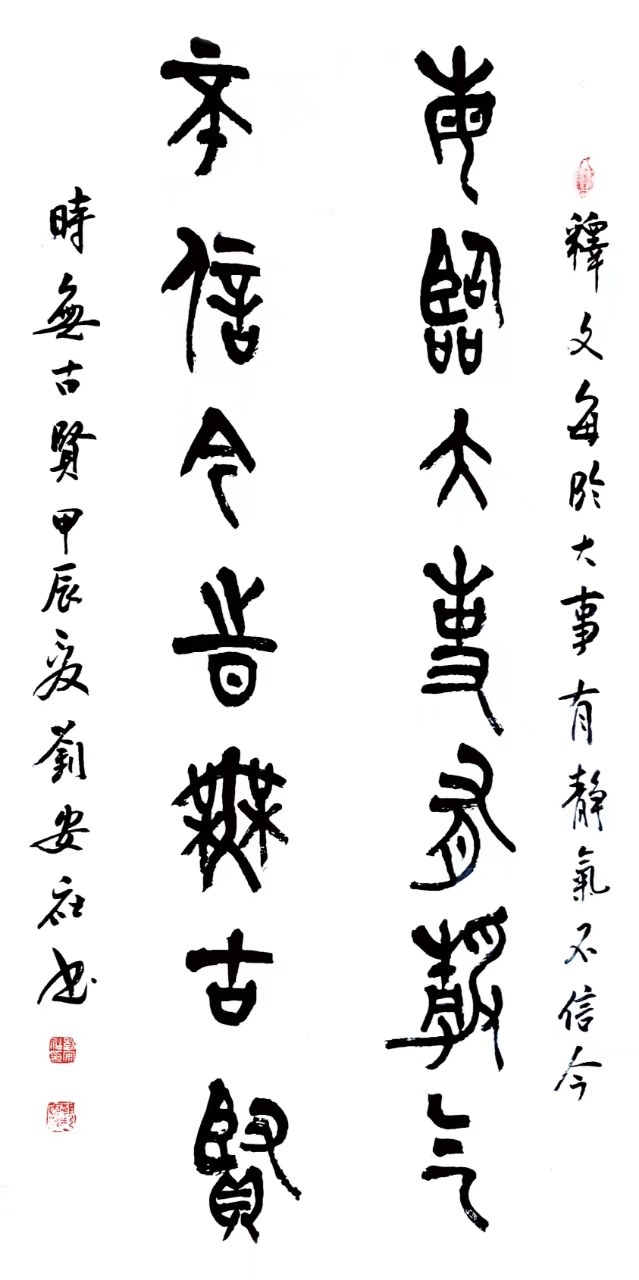 釋文每臨大事有靜氣不信今
每臨大事有靜氣
不信今時無古賢
時無古賢甲辰夏劉安書